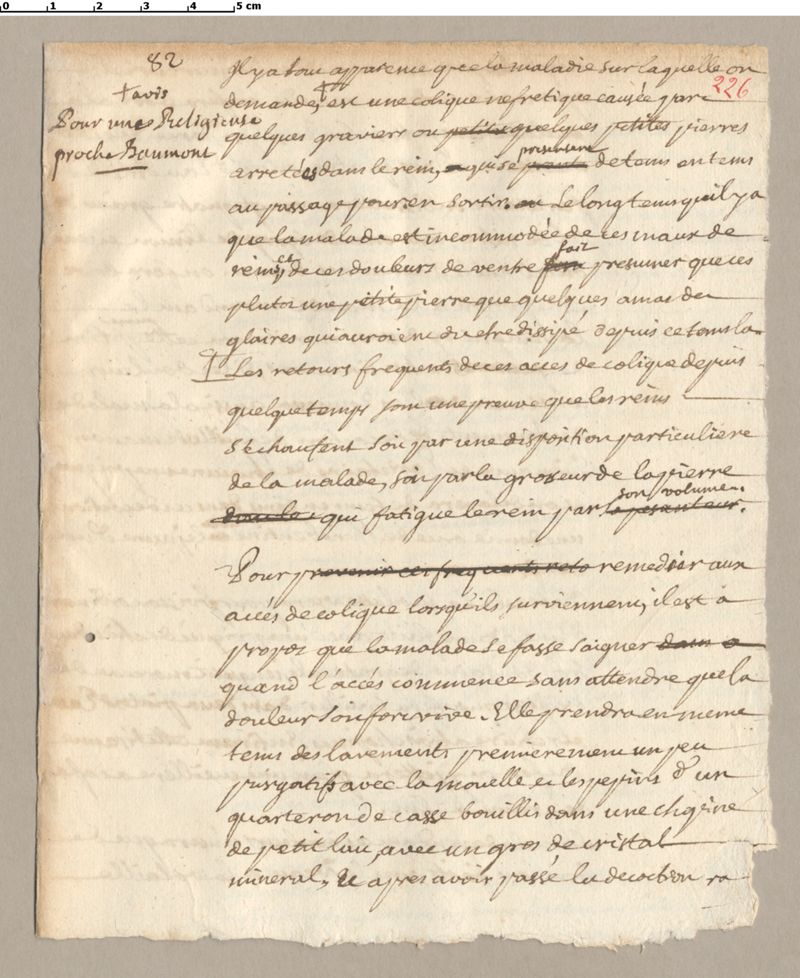 0 1 2 3 4 5 cm
82
226
+ avis
Pour une Religieuse
proche Baumont
Il y a tout apparence que la maladie sur laquelle on
demande, + est une colique nefretique causée par
quelques graviers ou petites quelques petites pierres
presenter
arretées dans le rein, qui se de tems en tems
au passage pour en sortir. ou Le long tems quil y a
que la malade est incommodée de ces maux de
fait
reins, et de ces douleurs de ventre presumer que ces
plutot une petite pierre que quelques amas de
glaires qui auroient du etre dissipé depuis ce tems la
Les retours frequents de ces acces de colique depuis
quelque temps sont une preuve que les reins
s'échaufent soit par une disposition particuliere
de la malade, soit par la groseur de la pierre
son volume.
qui fatigue le rein par la pesanteur.
Pour prevenir ces frequents reto remedier aux
accés de colique lorsqu'ils surviennent, il est a
propos que la malade se fasse saigner dans
quand l'accés commence sans attendre que la
douleur soit fort vive. Elle prendra en meme
tems des lavements premierement un peu
purgatifs avec la mouelle et les pepins d'un
quarteron de casse bouillis dans une chopine
de petit lait, avec un gros de cristal
mineral, et apres avoir passé la decoction